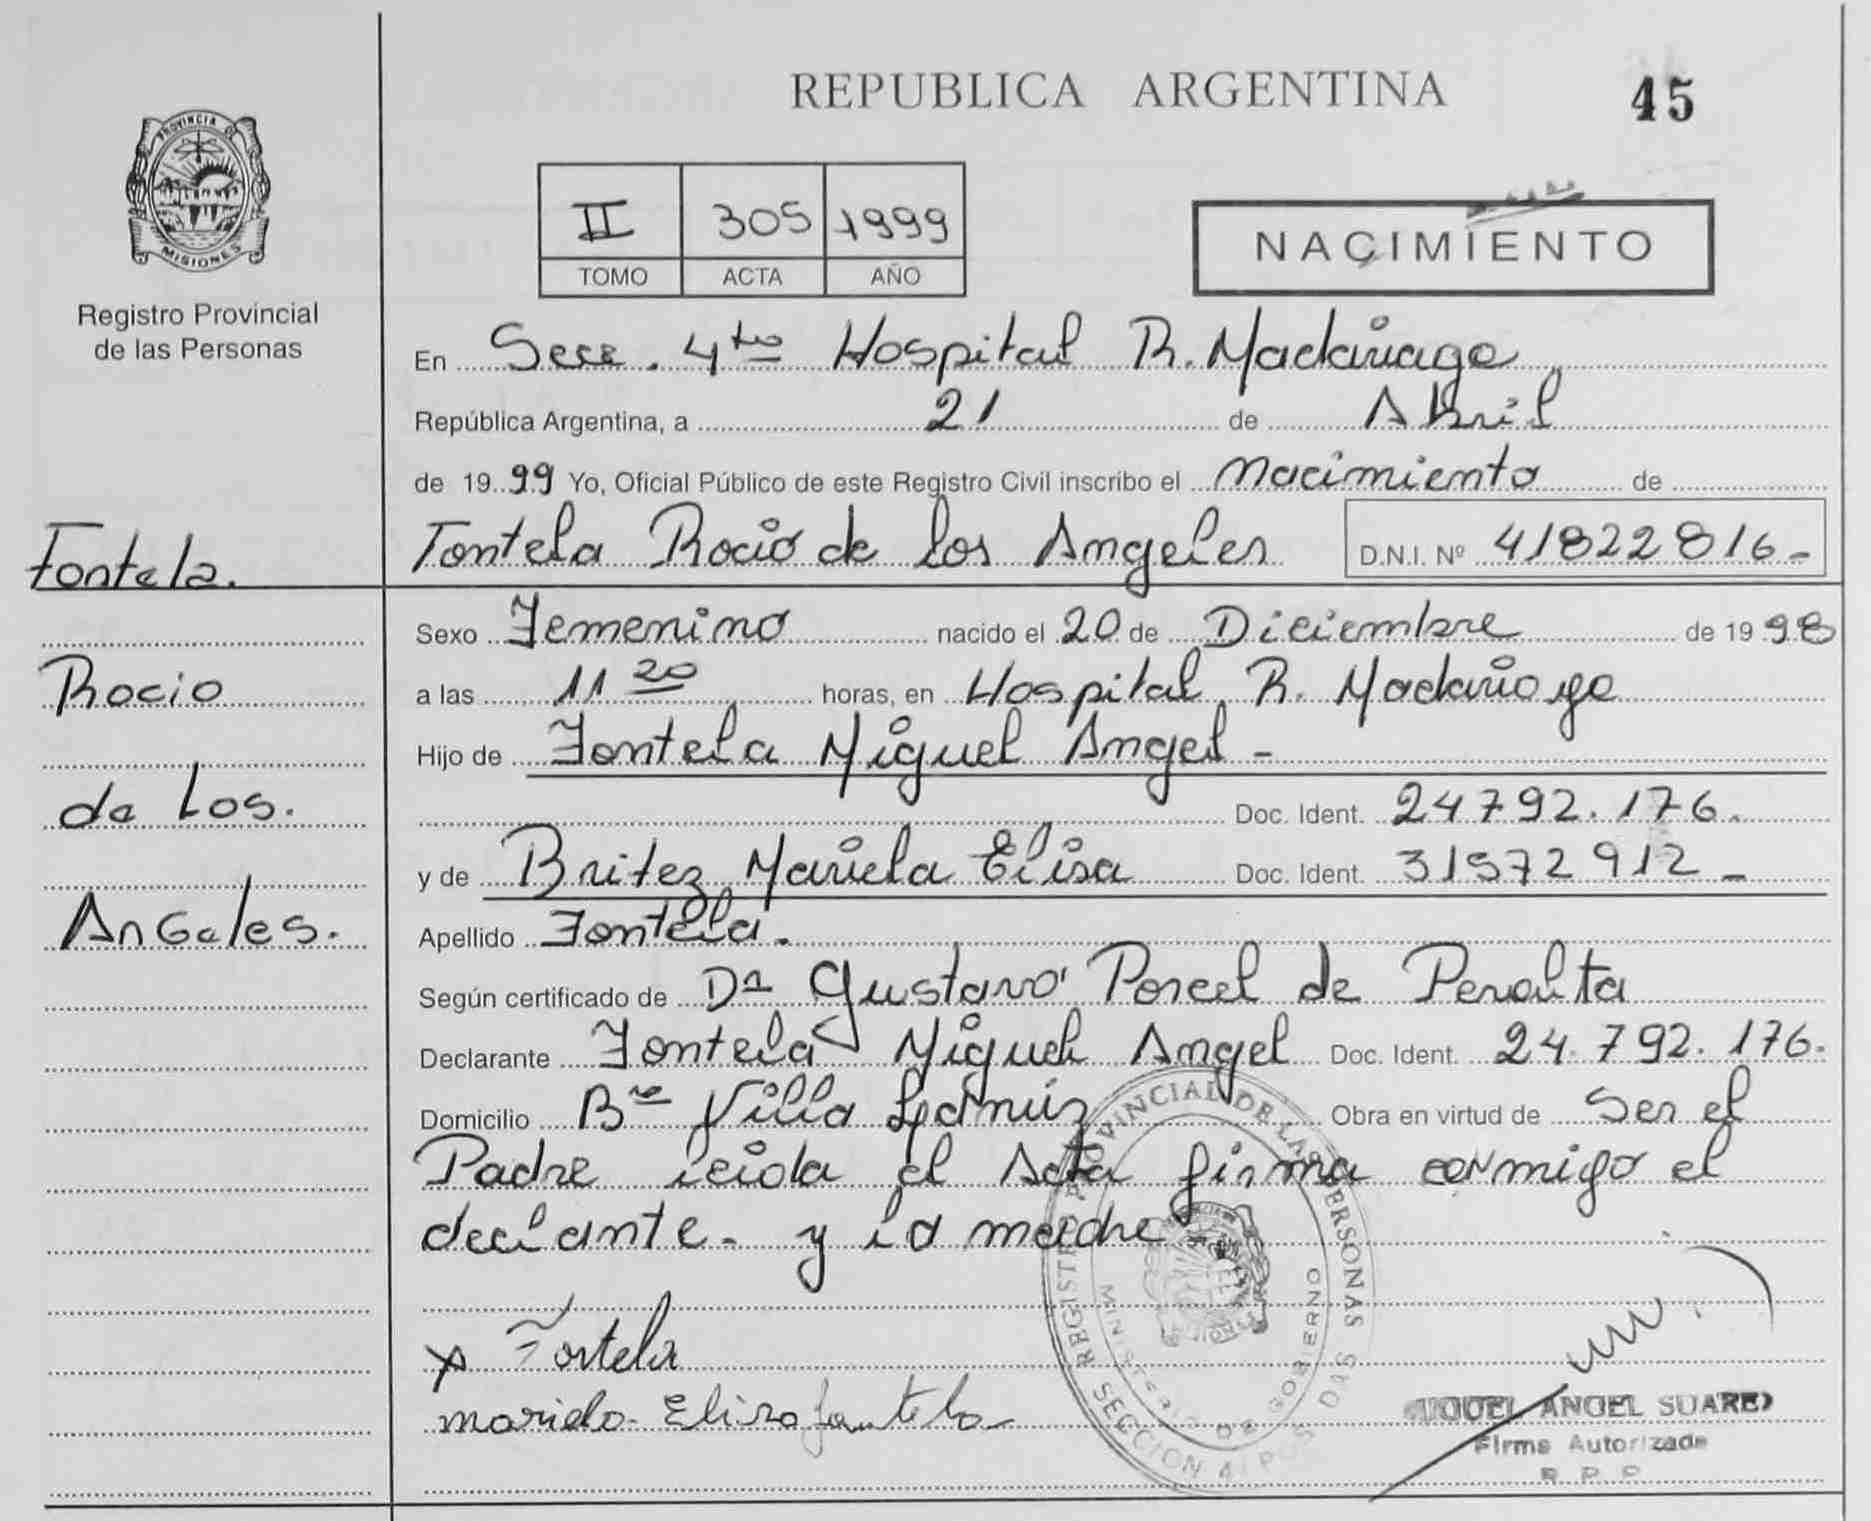 REPUBLICA ARGENTINA
45
PROVINCIA DE
MISIONES
Registro Provincial
de las Personas
II 305 1999
TOMO ACTA AÑO
NACIMIENTO
En Secc. 4ta Hospital R. Madariaga
República Argentina, a 21 de Abril
de 1999 Yo, Oficial Público de este Registro Civil inscribo el Nacimiento de
Fontela Rocio de los Angeles D.N.I. Nº 41822816-
Fontela.
Rocio
de Los.
AnGeles.
Sexo Femenino nacido el 20 de Diciembre de 1998
a las 11 20 horas, en Hospital R. Madariaga
Hijo de Fontela Miguel Angel -
Doc. Ident. 24792.176.
y de Britez Mariela Elisa Doc. Ident. 31572912-
Apellido Fontela.
Según certificado de Dr Gustavo Porcel de Peralta
Declarante Fontela Miguel Angel Doc. Ident. 24.792.176.
Domicilio Bro Villa Lanús Obra en virtud de Ser el
Padre leida el Acta firma conmigo el
declante. y la madre
x Fontela
mariela Elisa fontela
REGISTRO PROVINCIAL DE LAS PERSONAS
MINISTERIO DE GOBIERNO
SECCION 4
POSADAS
MIGUEL ANGEL SUAREZ
Firma Autorizada
R. P. P.